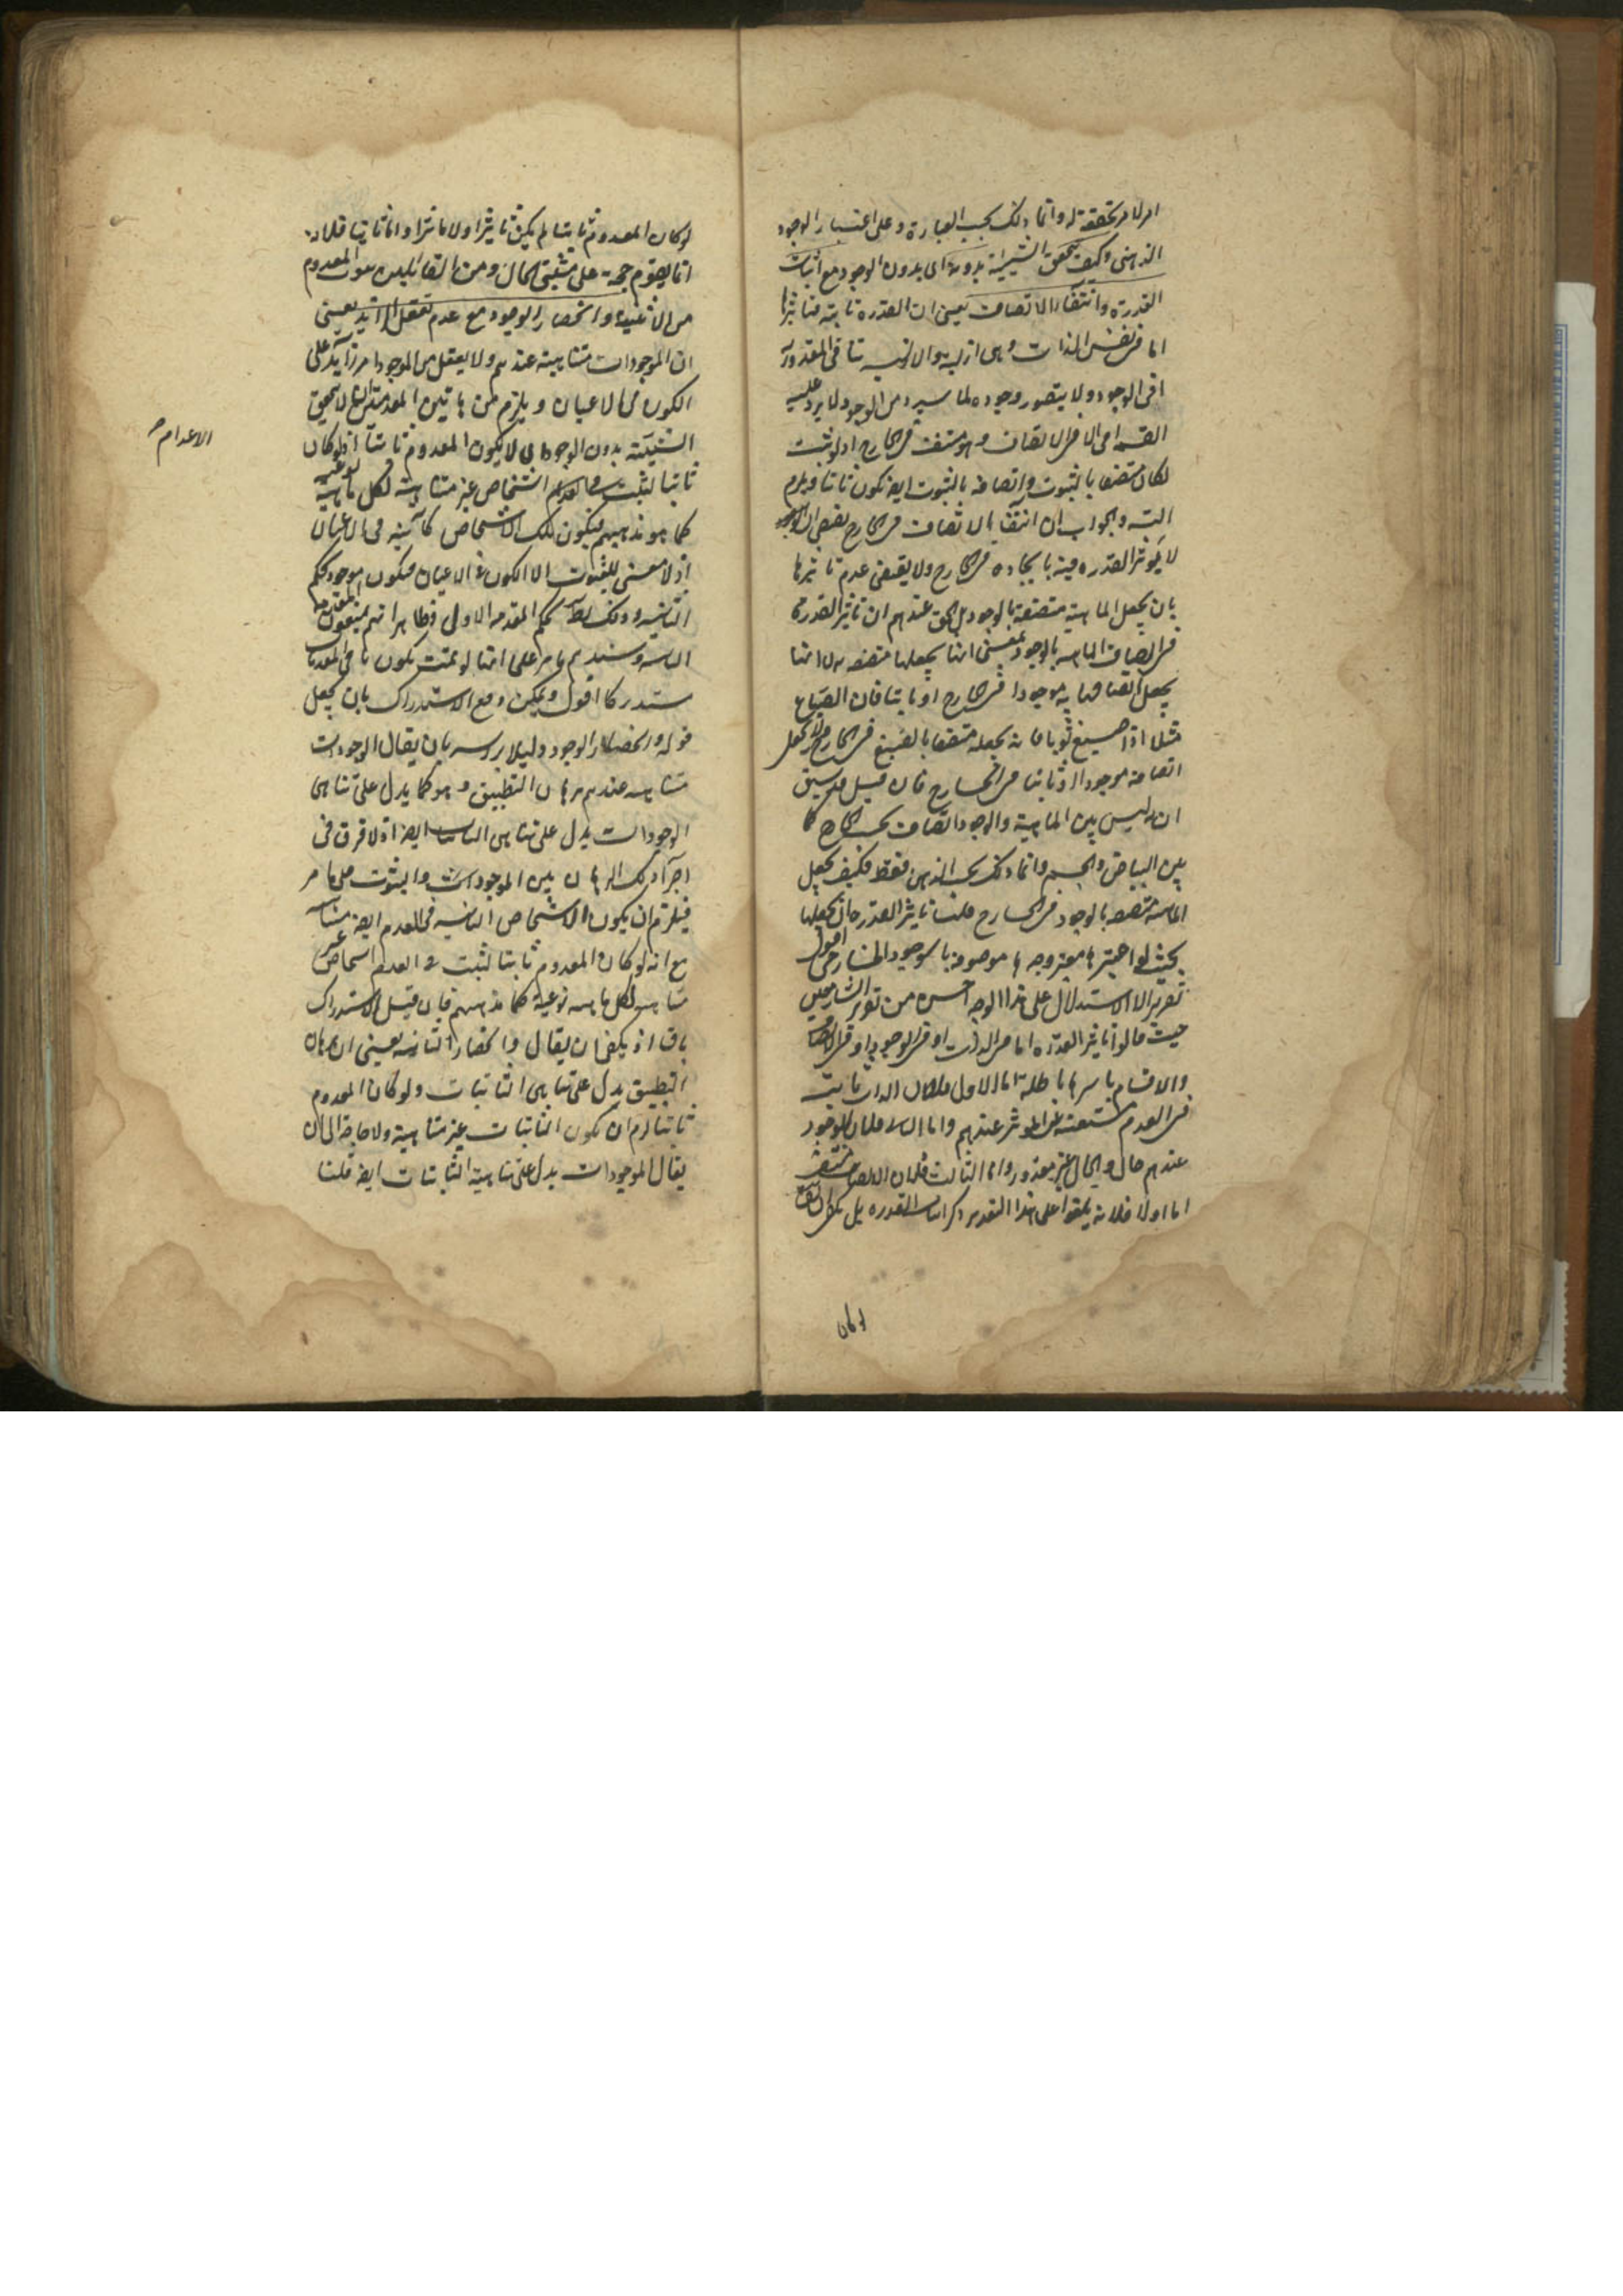 امر لامر تحققه له وانما ذلك بحسب العبارة وعلى اعتبار الوجود
الذهنى وكيف يتحقق الشيئية بدونه اى بدون الوجود مع اثبات
القدرة وانتفاء الاتصاف يعنى ان القدرة ثابتة فتاثيرها
اما فى نفس الذات وهى ازلية والازلية تنافى المقدورية
او فى الوجود ولا يتصور وجوده لما سيرد من الوجود لا يرد عليه
القسمة او فى الاتصاف وهو منتف فى الخارج اذ لو ثبت
لكان متصفا بالثبوت واتصافه بالثبوت ايضا يكون ثابتا ويلزم
التسه والجواب ان انتفاء الاتصاف فى الخارج يقتضى ان
لا يؤثر القدرة فيه بايجاده فى الخارج ولا يقتضى عدم تاثيرها
بان يجعل الماهية متصفة بالوجود بل الحق عندهم ان تاثير القدرة
فى اتصاف الماهية بالوجود بمعنى انها يجعلها متصفة به لا انها
يجعل اتصافها به موجودا فى الخارج او ثابتا فان الصباغ
مثلا اذا صبغ ثوبا فانه يجعله متصفا بالصبغ فى الخارج ولا يجعل
اتصافه موجودا او ثابتا فى الخارج فان قيل قد سبق
انه ليس بين الماهية والوجود اتصاف بحسب الخارج كما
بين البياض والجسم وانما ذلك بحسب الذهن فقط فكيف يجعل
الماهية متصفة بالوجود فى الخارج قلنا تاثير القدرة ان يجعلها
بحيث لو اعتبرها معتبر وجدها موصوفة بالوجود الخارجى اقول
تقرير الاستدلال على هذا الوجه احسن من تقرير الشارحين
حيث قالوا تاثير القدرة اما فى الذات او فى الوجود او فى الاتصاف
والاقسام باسرها باطلة اما الاول فلان الذات ثابتة
فى العدم مستغنية عن المؤثر عندهم واما الثانى فلان الوجود
عندهم حال والحال غير مقدور واما الثالث فلان الاتصاف منتف
اما اولا فلانه يلغوا على هذا التقدير ذكر اثبات القدرة بل يكفى ان يقال
لو كان
لو كان المعدوم ثابتا لم يكن تاثيرا ولا مؤثرا واما ثانيا فلانه
انما يقوم حجة على مثبتى الحال ومن القائلين بثبوت المعدوم
من لا يثبته وانحصار الوجود مع عدم تعقل الزايد يعنى
ان الموجودات متناهية عندهم ولا يعقل من الوجود امر زايد على
الكون فى الاعيان ويلزم من هاتين المقدمتين ان لا يتحقق
الشيئية بدون الوجود اى لا يكون المعدوم ثابتا اذ لو كان
ثابتا لثبت فى العدم اشخاص غير متناهية لكل ماهية نوعية
كما هو مذهبهم فيكون تلك الاشخاص كائنة فى الاعيان
اذ لا معنى للثبوت الا الكون فى الاعيان فيكون موجودة بحكم
الثانية وذلك باطل بحكم المقدمة الاولى وظاهر انهم يمنعون المقدمة
الثانية وسندهم ما مر على انها لو تمت يكون باقى المقدمات
مستدركا اقول ويمكن دفع الاستدراك بان يجعل
قوله وانحصار الوجود دليلا براسه بان يقال الوجودات
متناهية عندهم ببرهان التطبيق وهو كما يدل على تناهى
الوجودات يدل على تناهى الثابتات ايضا اذ لا فرق فى
اجراء ذلك البرهان بين الموجودات والثبوت على ما مر
فيلزم ان يكون الاشخاص الثابتة فى العدم ايضا متناهية
مع انه لو كان المعدوم ثابتا لثبت فى العدم اشخاص غير
متناهية لكل ماهية نوعية كما مذهبهم فان قيل الاستدراك
باق اذ يكفى ان يقال وانحصار الثابتة يعنى ان برهان
التطبيق يدل على تناهى الثابتات ولو كان المعدوم
ثابتا لزم ان يكون الثابتات غير متناهية ولا حاجة الى ان
يقال الموجودات يدل على تناهية الثابتات ايضا قلنا
الاعدام